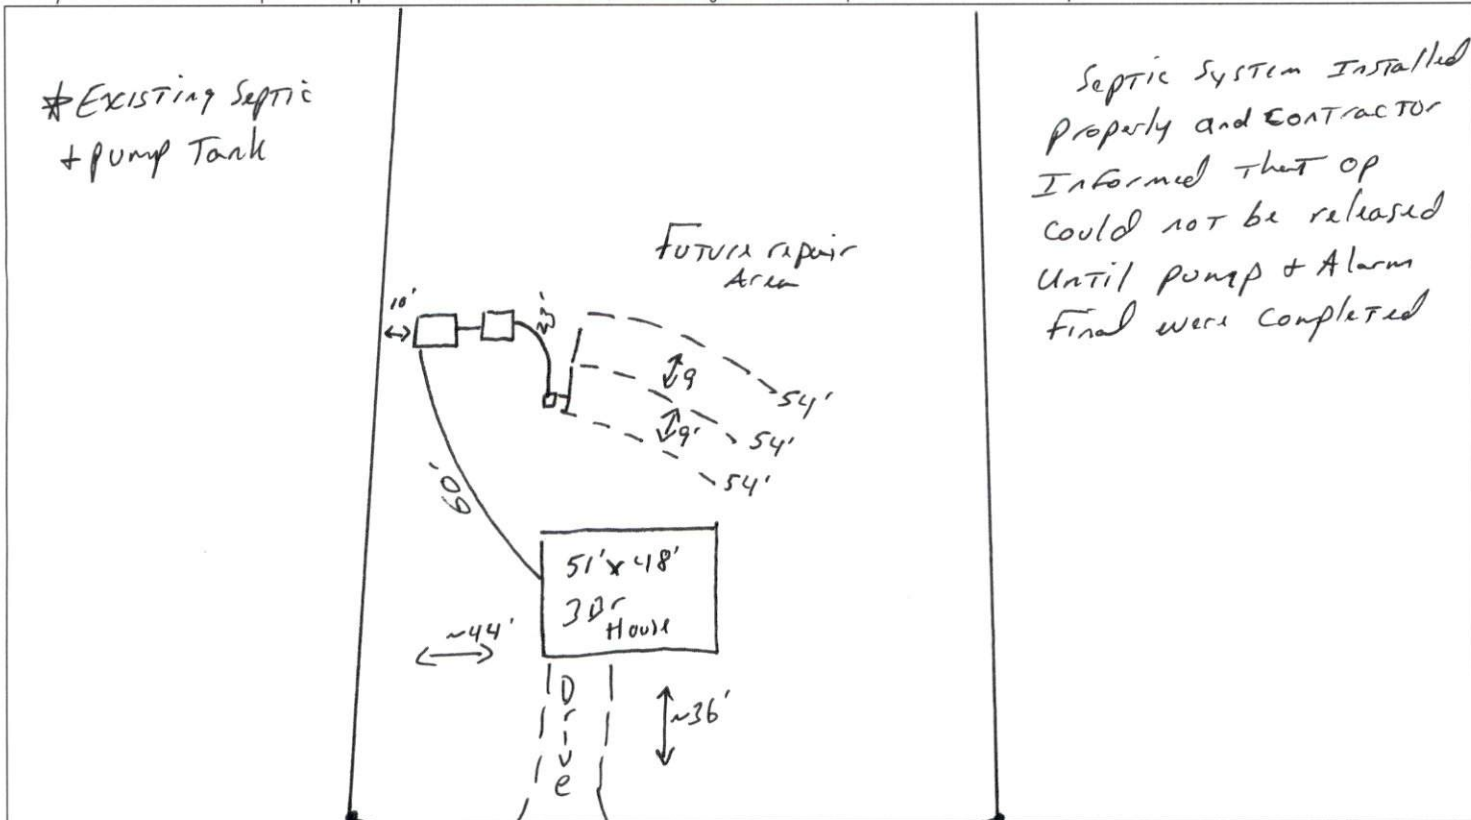 * Existing Septic
+ pump Tank
Septic System Installed
Properly and Contractor
Informed That OP
Could not be released
Until pump + Alarm
Final were Completed
Future repair
Area
10'
9
9'
54'
54'
54'
60'
51' x 48'
3 Br
House
~44'
~36'
Drive